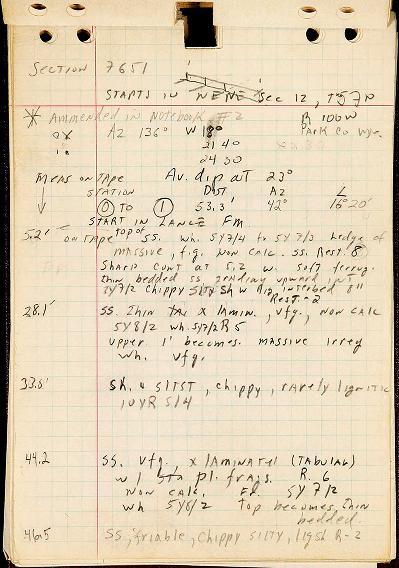 SECTION 7651
STARTS IN NENE Sec 12, T57N
* Ammended in Notebook # 2 R 100W
AZ 136° W 18° Park Co Wyo
21 40
24 30
Meas on Tape Av. dip at 23°
STATION DIST AZ L
↓ 0 TO 1 53.3' 42° 16°20'
START IN LANCE Fm
5.2' on Tape top of SS. wh. 5Y7/4 to 5Y7/3 Ledge of
massive, f.g. non calc. SS. Resist. 8
Sharp cont at 5.2 w. soft
thin bedded ss grading upward into
5Y7/2 chippy silty sh w interbed 8"
Rest-2
28.1' SS. Thin x lamin., vfg, non calc
5Y8/2 wh. 5Y7/2 R5
upper 1' becomes massive irreg
wh. vfg.
33.8' Sh. & SLTST, chippy, rarely lignitic
10YR 5/4
44.2 SS. vfg, x laminated (TABULAR)
w/ pl. frags. R. 6
Non calc. 5Y 7/2
wh 5Y8/2 Top becomes thin
bedded.
46.5 SS, friable, chippy silty, R-2